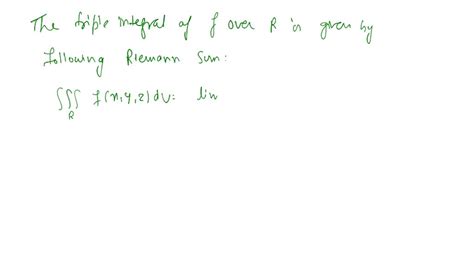 The triple integral of f over R is given by
following Riemann Sum:
∭_R f(x,y,z)dV: lim